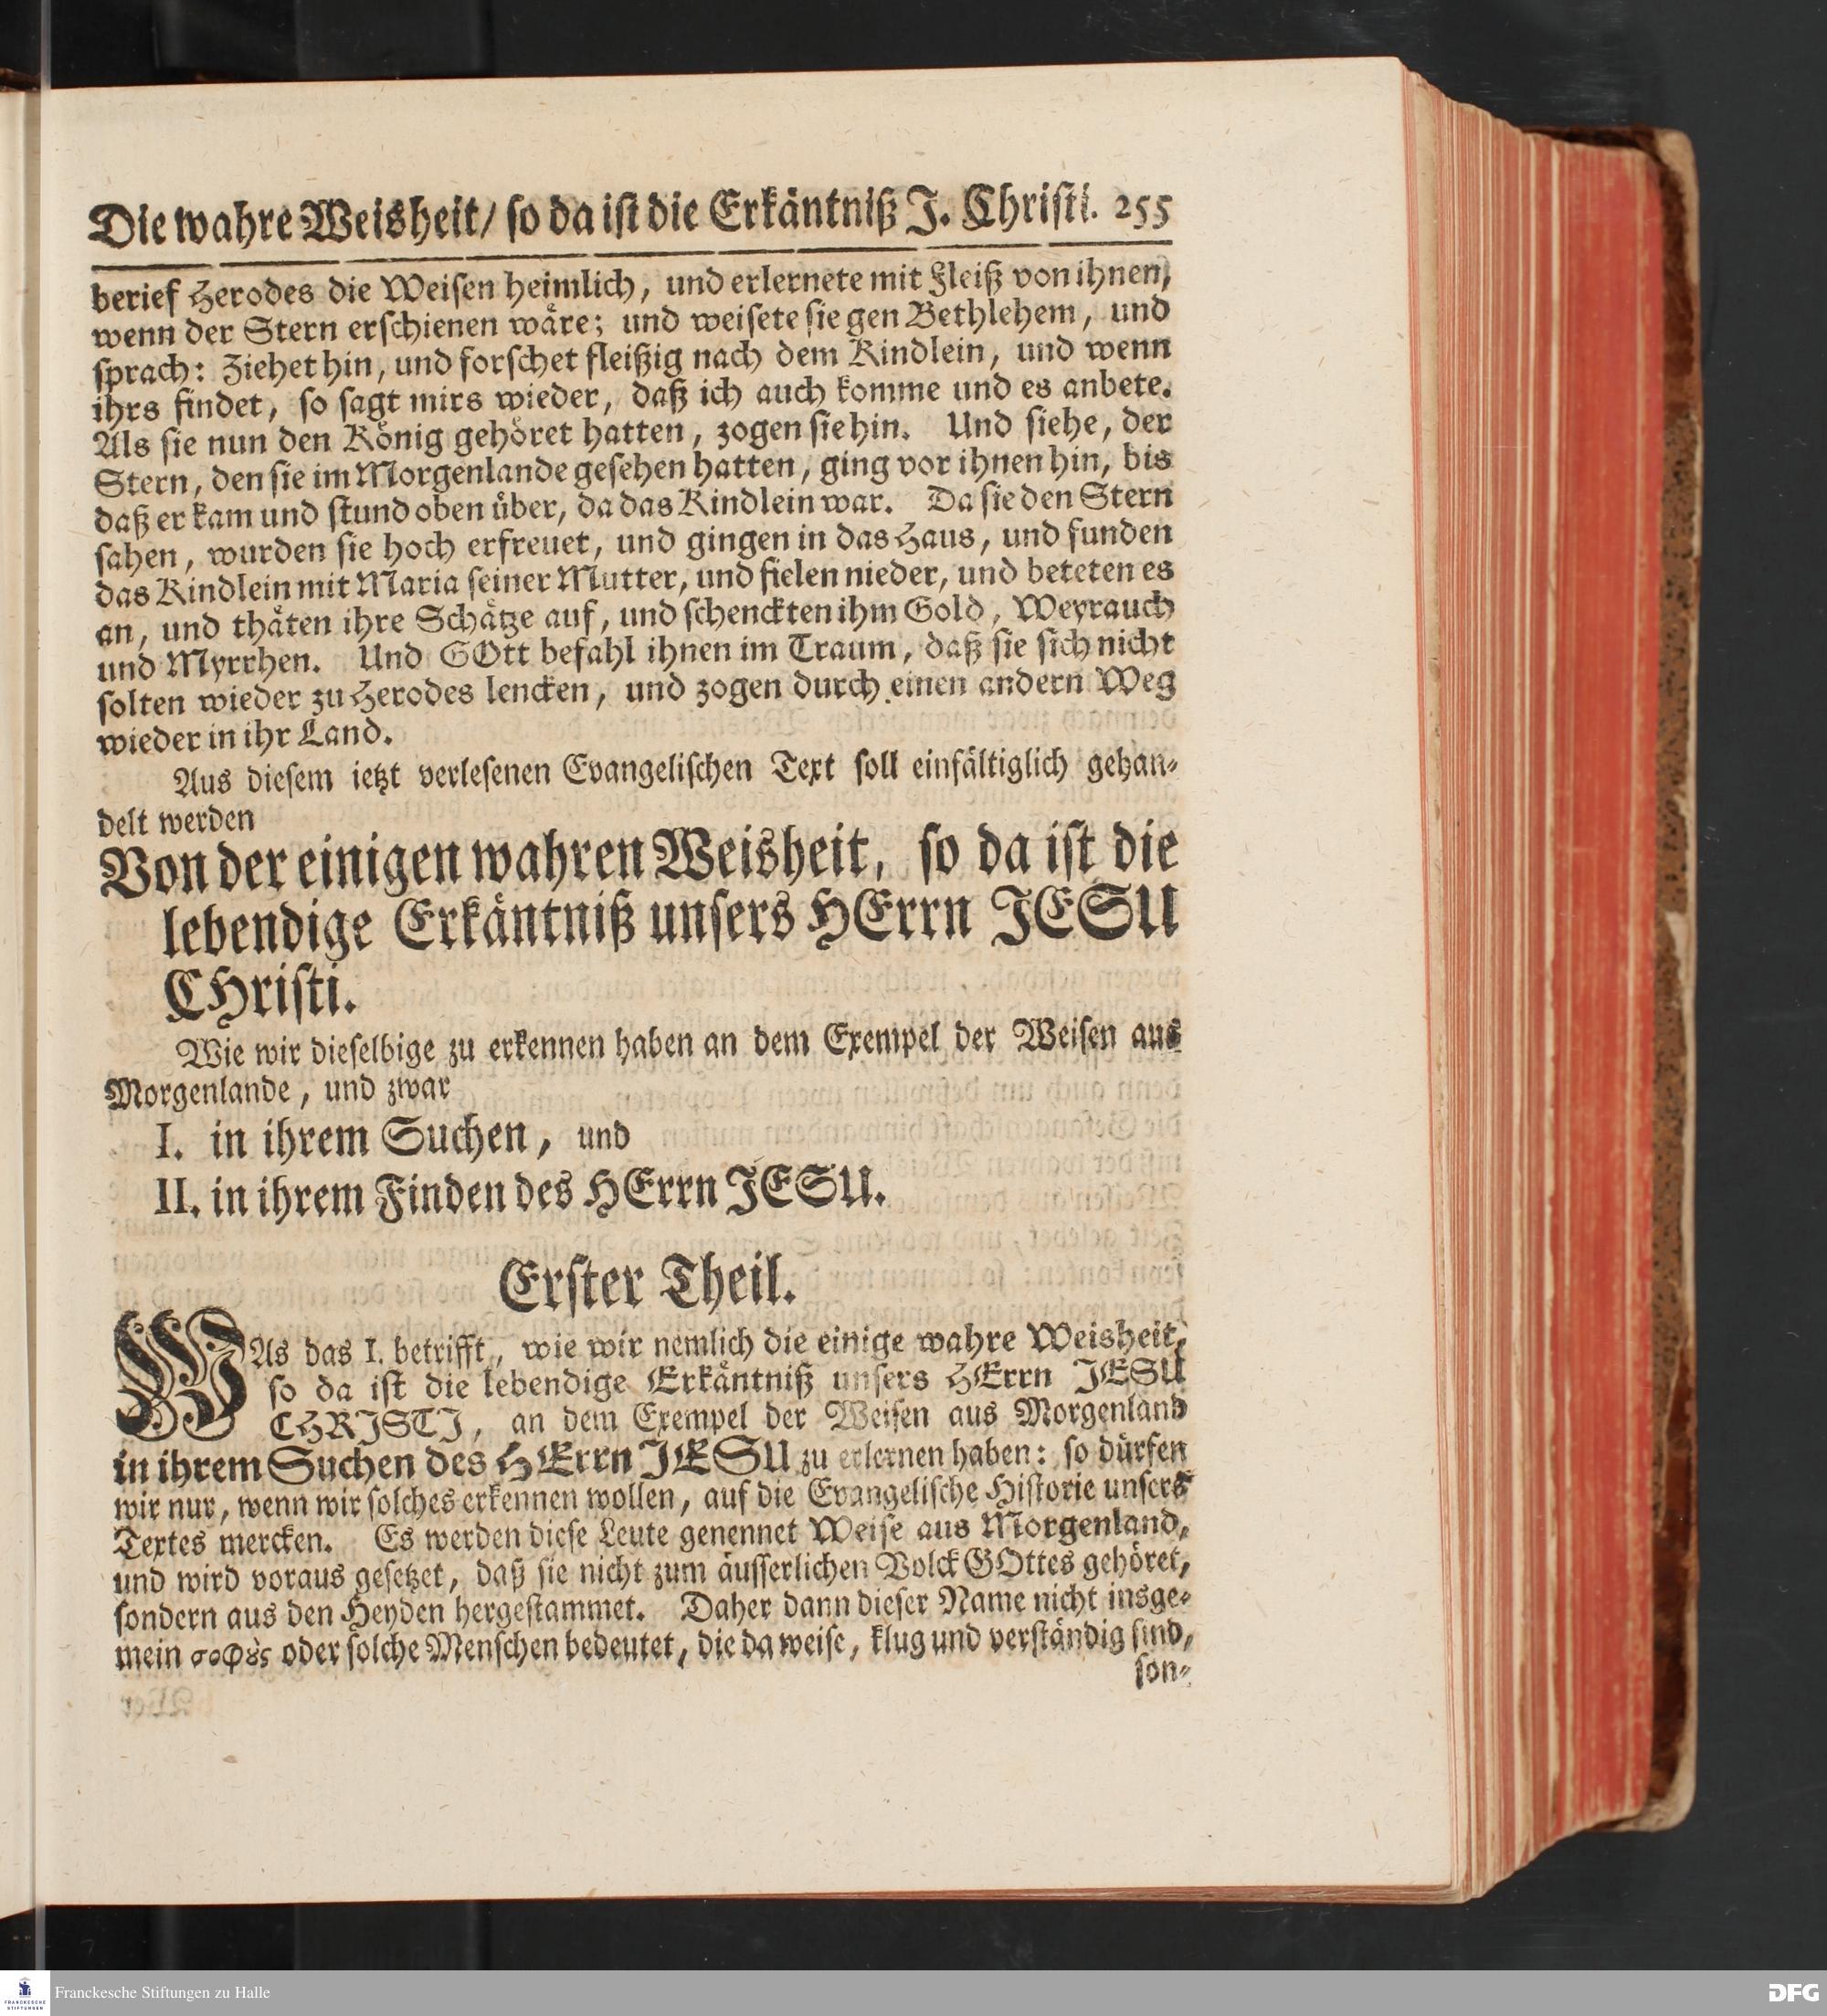 Die wahre Weisheit/ ſo da iſt die Erkäntniß J. Chriſti. 255
berief Herodes die Weiſen heimlich, und erlernete mit Fleiß von ihnen,
wenn der Stern erſchienen wäre; und weiſete ſie gen Bethlehem, und
ſprach: Ziehet hin, und forſchet fleißig nach dem Kindlein, und wenn
ihrs findet, ſo ſagt mirs wieder, daß ich auch komme und es anbete.
Als ſie nun den König gehöret hatten, zogen ſie hin. Und ſiehe, der
Stern, den ſie im Morgenlande geſehen hatten, ging vor ihnen hin, bis
daß er kam und ſtund oben über, da das Kindlein war. Da ſie den Stern
ſahen, wurden ſie hoch erfreuet, und gingen in das Haus, und funden
das Kindlein mit Maria ſeiner Mutter, und fielen nieder, und beteten es
an, und thäten ihre Schätze auf, und ſchenckten ihm Gold, Weyrauch
und Myrrhen. Und GOtt befahl ihnen im Traum, daß ſie ſich nicht
ſolten wieder zu Herodes lencken, und zogen durch einen andern Weg
wieder in ihr Land.
Aus dieſem ietzt verleſenen Evangeliſchen Text ſoll einfältiglich gehan-
delt werden
Von der einigen wahren Weisheit, ſo da iſt die
lebendige Erkäntniß unſers HErrn JESU
CHriſti.
Wie wir dieſelbige zu erkennen haben an dem Exempel der Weiſen aus
Morgenlande, und zwar
I. in ihrem Suchen, und
II. in ihrem Finden des HErrn JESU.
Erſter Theil.
WAs das I. betrifft, wie wir nemlich die einige wahre Weisheit,
ſo da iſt die lebendige Erkäntniß unſers HErrn JESU
CHRJSTJ, an dem Exempel der Weiſen aus Morgenland
in ihrem Suchen des HErrn JESU zu erlernen haben: ſo dürfen
wir nur, wenn wir ſolches erkennen wollen, auf die Evangeliſche Hiſtorie unſers
Textes mercken. Es werden dieſe Leute genennet Weiſe aus Morgenland,
und wird voraus geſetzet, daß ſie nicht zum äuſſerlichen Volck GOttes gehöret,
ſondern aus den Heyden hergeſtammet. Daher dann dieſer Name nicht insge-
mein σοφȣ̀ς oder ſolche Menſchen bedeutet, die da weiſe, klug und verſtändig ſind,
ſon-
Franckesche Stiftungen zu Halle
FRANCKESCHE
STIFTUNGEN
DFG